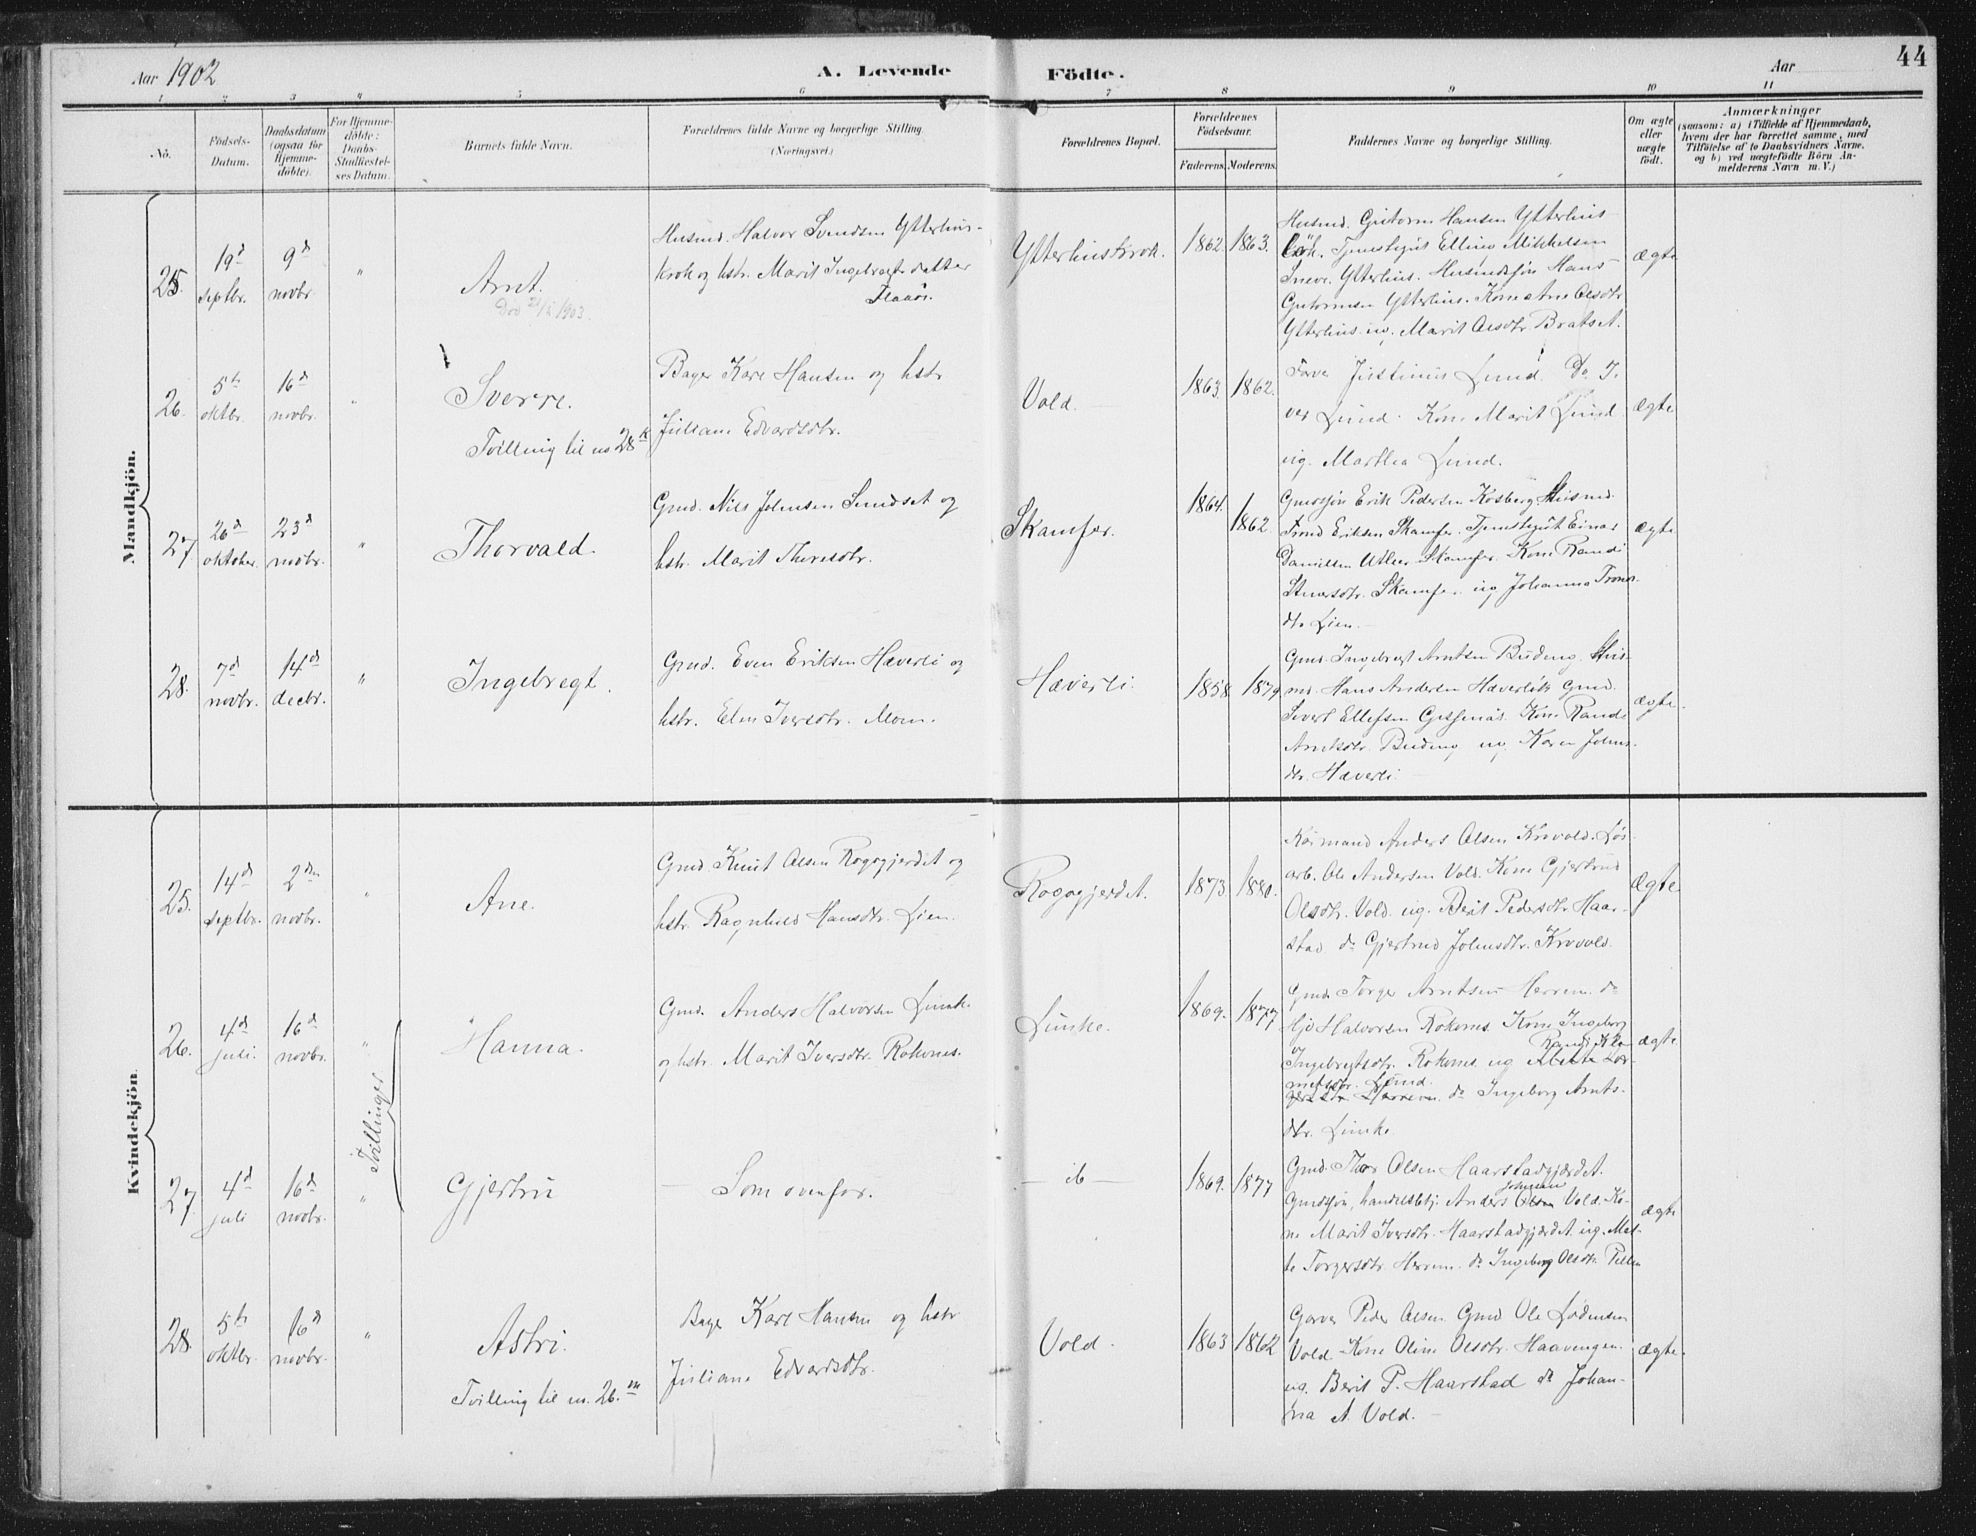 Aar 1902
A. Levende Födte.
Aar
44
1 2 3 4 5 6 7 8 9 10 11
No.
Födsels-Datum.
Daabsdatum (ogsaa for Hjemme-döbte).
For Hjemme-döbte: Daabs-Stadfæstel-ses Datum.
Barnets fulde Navn.
Forældrenes fulde Navne og borgerlige Stilling.
(Næringsvei.)
Forældrenes Bopæl.
Forældrenes Födselsaar.
Faderens. Moderens.
Faddernes Navne og borgerlige Stilling.
Om ægte eller uægte födt.
Anmærkninger
(saasom: a) i Tilfælde af Hjemmedaab,
hvem der har forrettet samme, med
Tilföielse af to Daabsvidners Navne,
og b) ved uægtefödte Börn An-
melderens Navn m. V.)
Mandkjön.
25. 19d septbr. 9d novbr. "
Arnt.
Död 21/1 1903.
Husmd. Halvor Svendsen Ytterhus-
krok og hstr. Marit Ingebrigtsdatter
Flaaön.
Ytterhuskrok.
1862. 1863.
Husmd. Guttorm Hansen Ytterhus
krok. Tjenestegut Elling Mikkelsen
Sneve Ytterhus. Husmdssøn Hans
Guttormsen Ytterhus. Kone Ane Olsdtr.
Ytterhus. ug. Marit Olsdtr. Bratset.
ægte
26. 5te oktbr. 16d novbr. "
Sverre.
Tvilling til no 28 k
Bager Karl Hansen og hstr
Juliane Edvardsdtr.
Vold.
1863. 1862.
Farver Justinus Lund. Do I-
ver Lund. Kone Marit Lund
ug. Marthea Lund.
ægte
27. 26d oktober. 23d novbr. "
Thorvald.
Gmd. Nils Johnsen Sundset og
hstr. Marit Thoresdtr.
Skamfer.
1864. 1862.
Gmdssøn Erik Pedersen Kosberg. Husmd.
Trond Eriksen Skamfer. Tjenestegut Einar
Danielsen Utleer Skamfer. Kone Randi
Skamfer. ug Johanna Trons-
dtr Lien.
ægte
28. 7d novbr. 14d decbr. "
Ingebregt.
Gmd. Even Eriksen Hæverli og
hstr. Elen Iversdtr. Moen.
Hæverli.
1858 1879
Gmd. Ingebregt Arntsen Buding. Hus-
md. Hans Andersen Hæverli Gmd.
Sivert Ellefsen Gisnaas. Kone Randi
Arntsdtr. Buding ug. Karen Johns-
dtr. Hæverli
ægte.
Kvindekjön.
25. 14d septbr. 2den novbr. "
Ane.
Gmd Knut Olsen Rogogjerdet og
hstr. Ragnhild Hansdtr. Lien.
Rogogjerdet.
1873 1880.
Kaarmand Anders Olsen Krovold. Løs-
arb. Ole Andersen Vold. Kone Gjertrud
Olsdtr. Vold. ug. Berit Pedersdtr. Haar-
stad do Gjertrud Johnsdtr. Krovold.
ægte
26. 4d juli. 16d novbr. "
Tvillinger
Hanna.
Gmd. Anders Halvorsen Linke
og hstr. Marit Iversdtr. Rokones.
Linke.
1869. 1877
Gmd. Torger Arntsen Herrem. do
Halvorsen Rokones. Kone Ingeborg
Ingebregtsdtr. Rokones ug
Randi
Lund.
do Ingeborg Arnts-
dtr. Linke
ægte
27. 4d juli 16d novbr. "
Gjertru
— Som ovenfor.
— ib —
1869. 1877
Gmd. Thor Olsen Haarstadgjærdet.
Gmdssøn, handelsbtj. Anders Johnsen Vold. Ko-
ne Marit Iversdtr. Haarstadgjærdet. ug. Mal-
Torgersdtr. Herrem. do Ingeborg Olsdtr.
ægte
28. 5te oktbr. 16d novbr. "
Astri.
Tvilling til no. 26. m
Bager Karl Hansen og hstr
Juliane Edvardsdtr.
Vold.
1863 1862
Garver Peder Olsen Gmd Ole
Vold. Kone Oline Olsdtr. Haavengen.
ug. Berit P. Haarstad do Johan-
na A. Vold.
ægte.